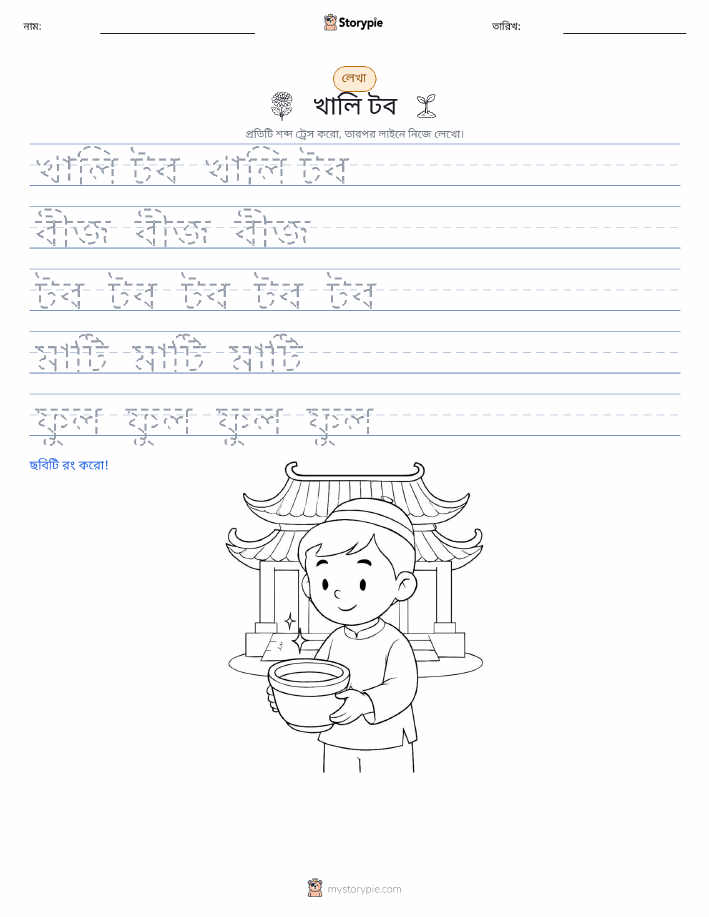 নাম:
Storypie
তারিখ:
লেখা
খালি টব
প্রতিটি শব্দ ট্রেস করো, তারপর লাইনে নিজে লেখো।
খালি টব খালি টব
বীজ বীজ বীজ
টব টব টব টব টব
মাটি মাটি মাটি
ফুল ফুল ফুল ফুল
ছবিটি রং করো!
mystorypie.com